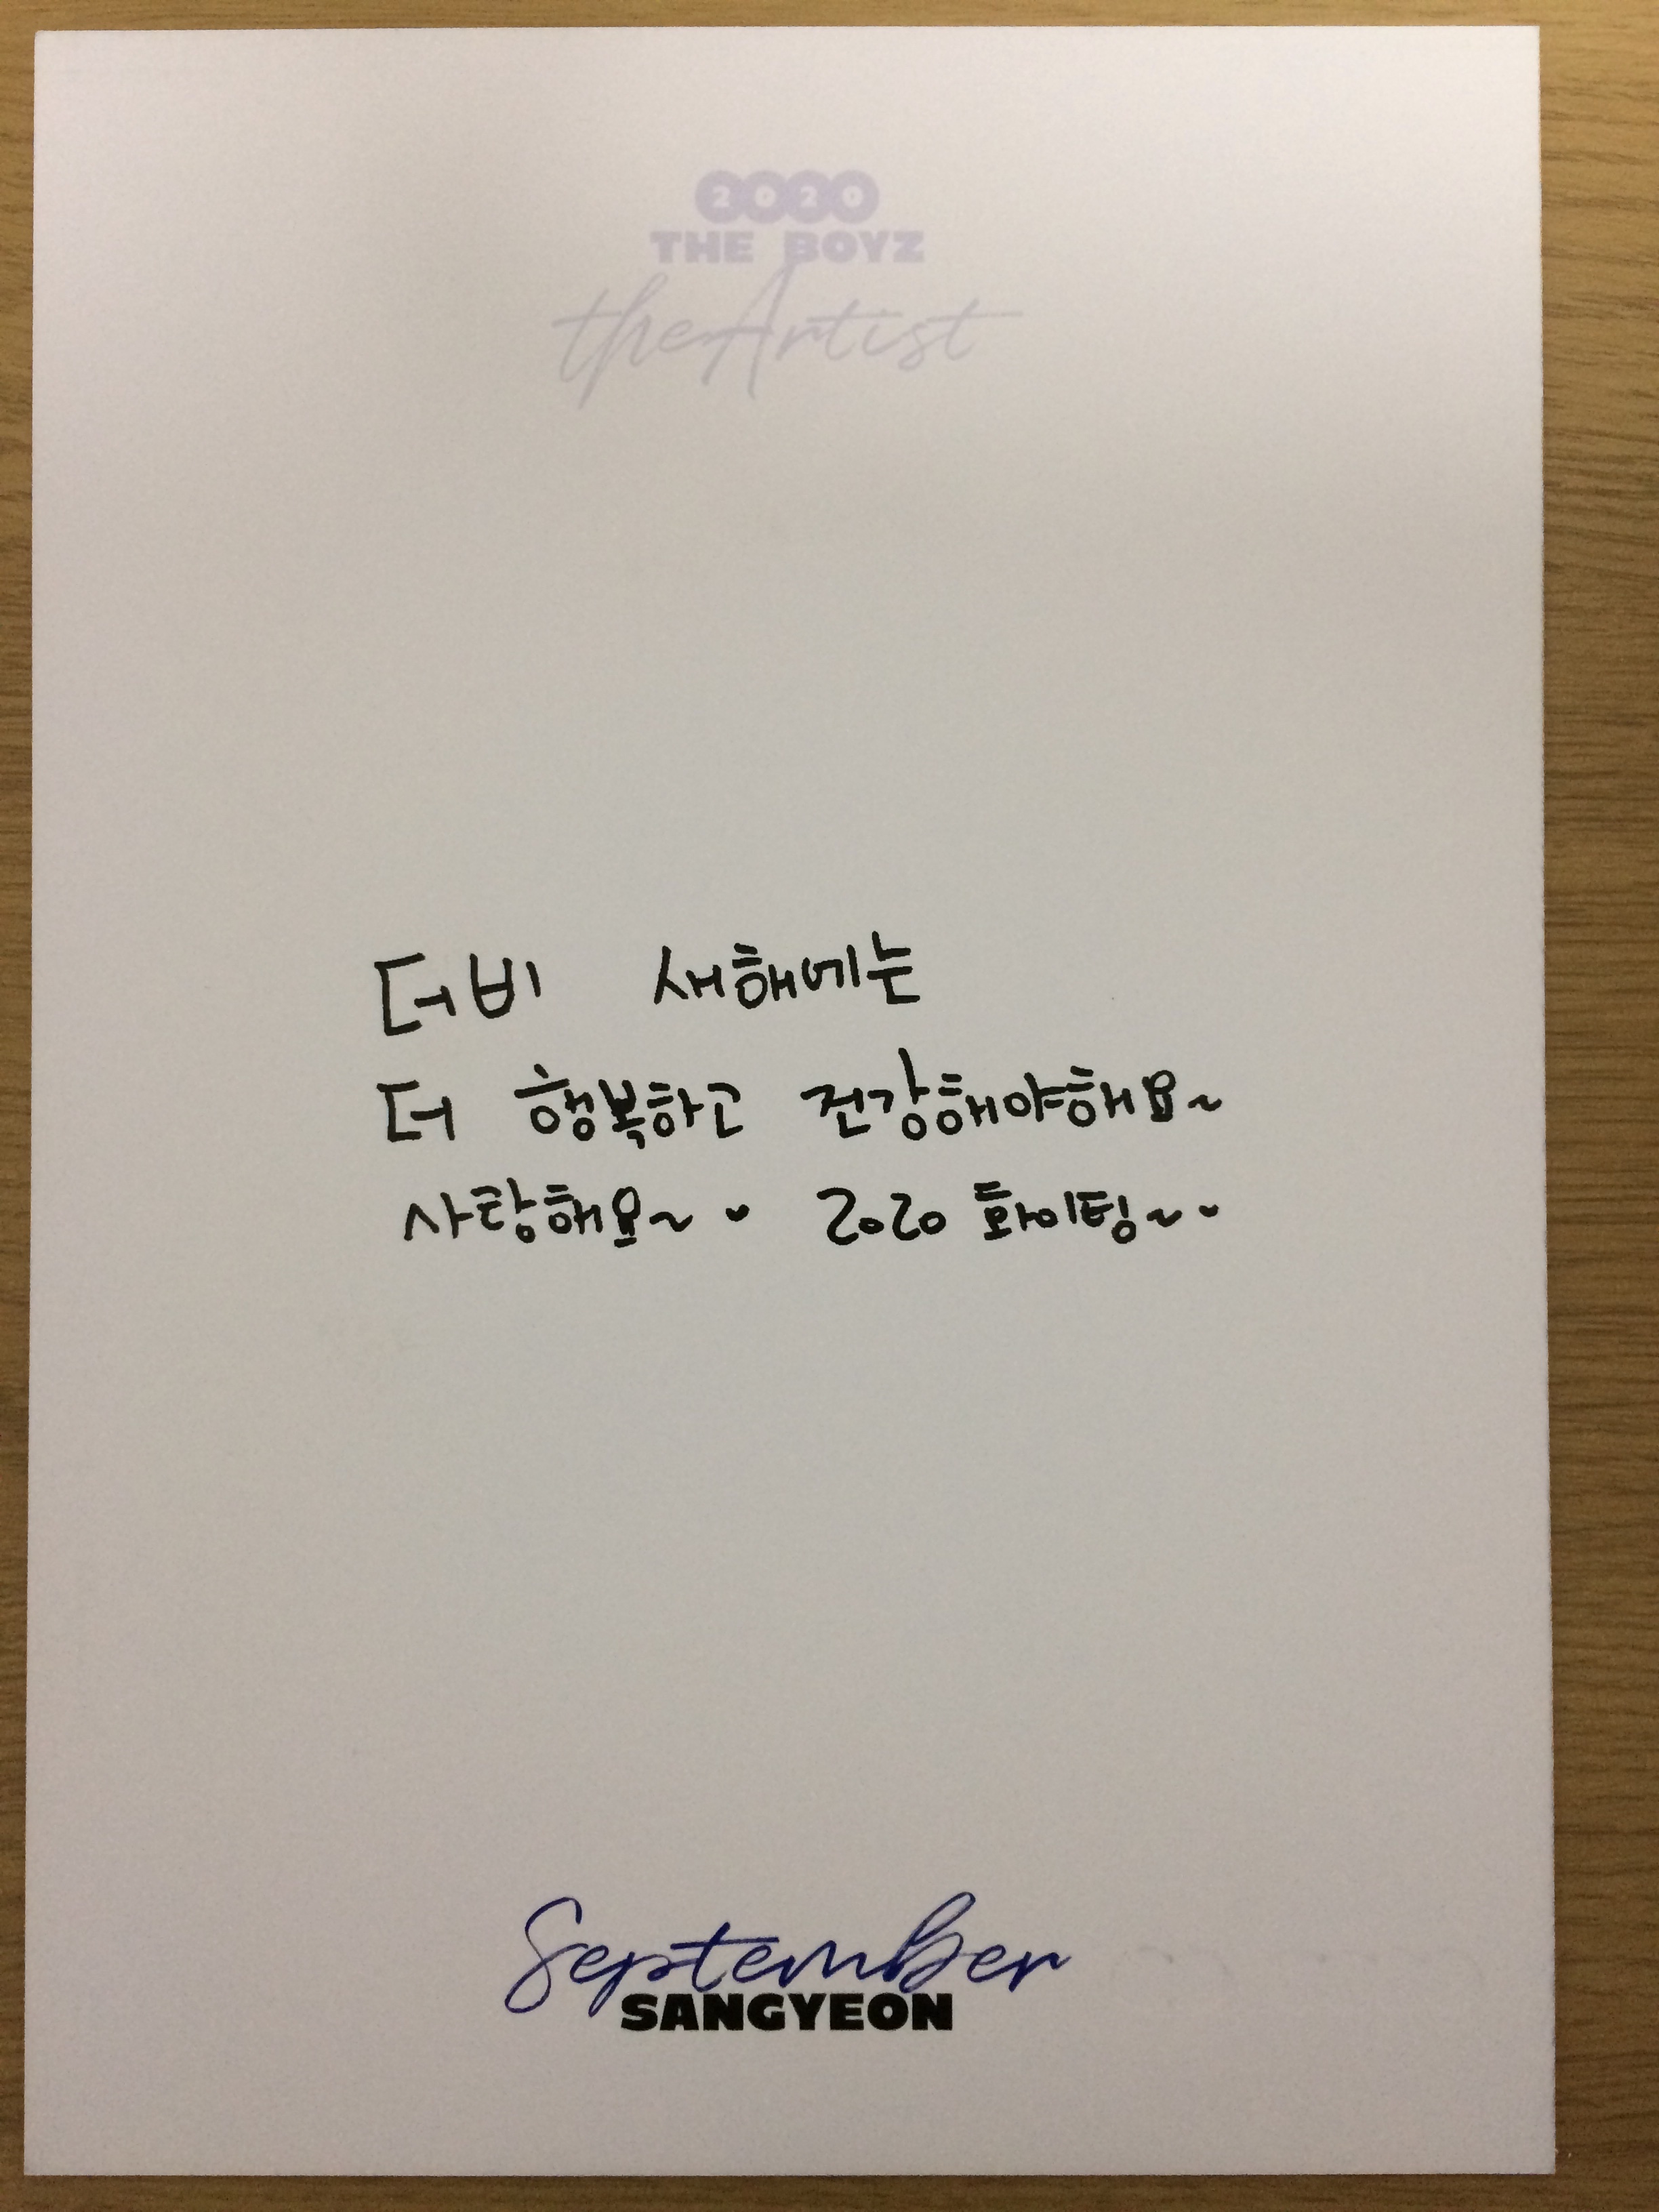 2020
THE BOYZ
the Artist
더비 새해에는
더 행복하고 건강해야해요~
사랑해요~ 2020 화이팅~
September
SANGYEON